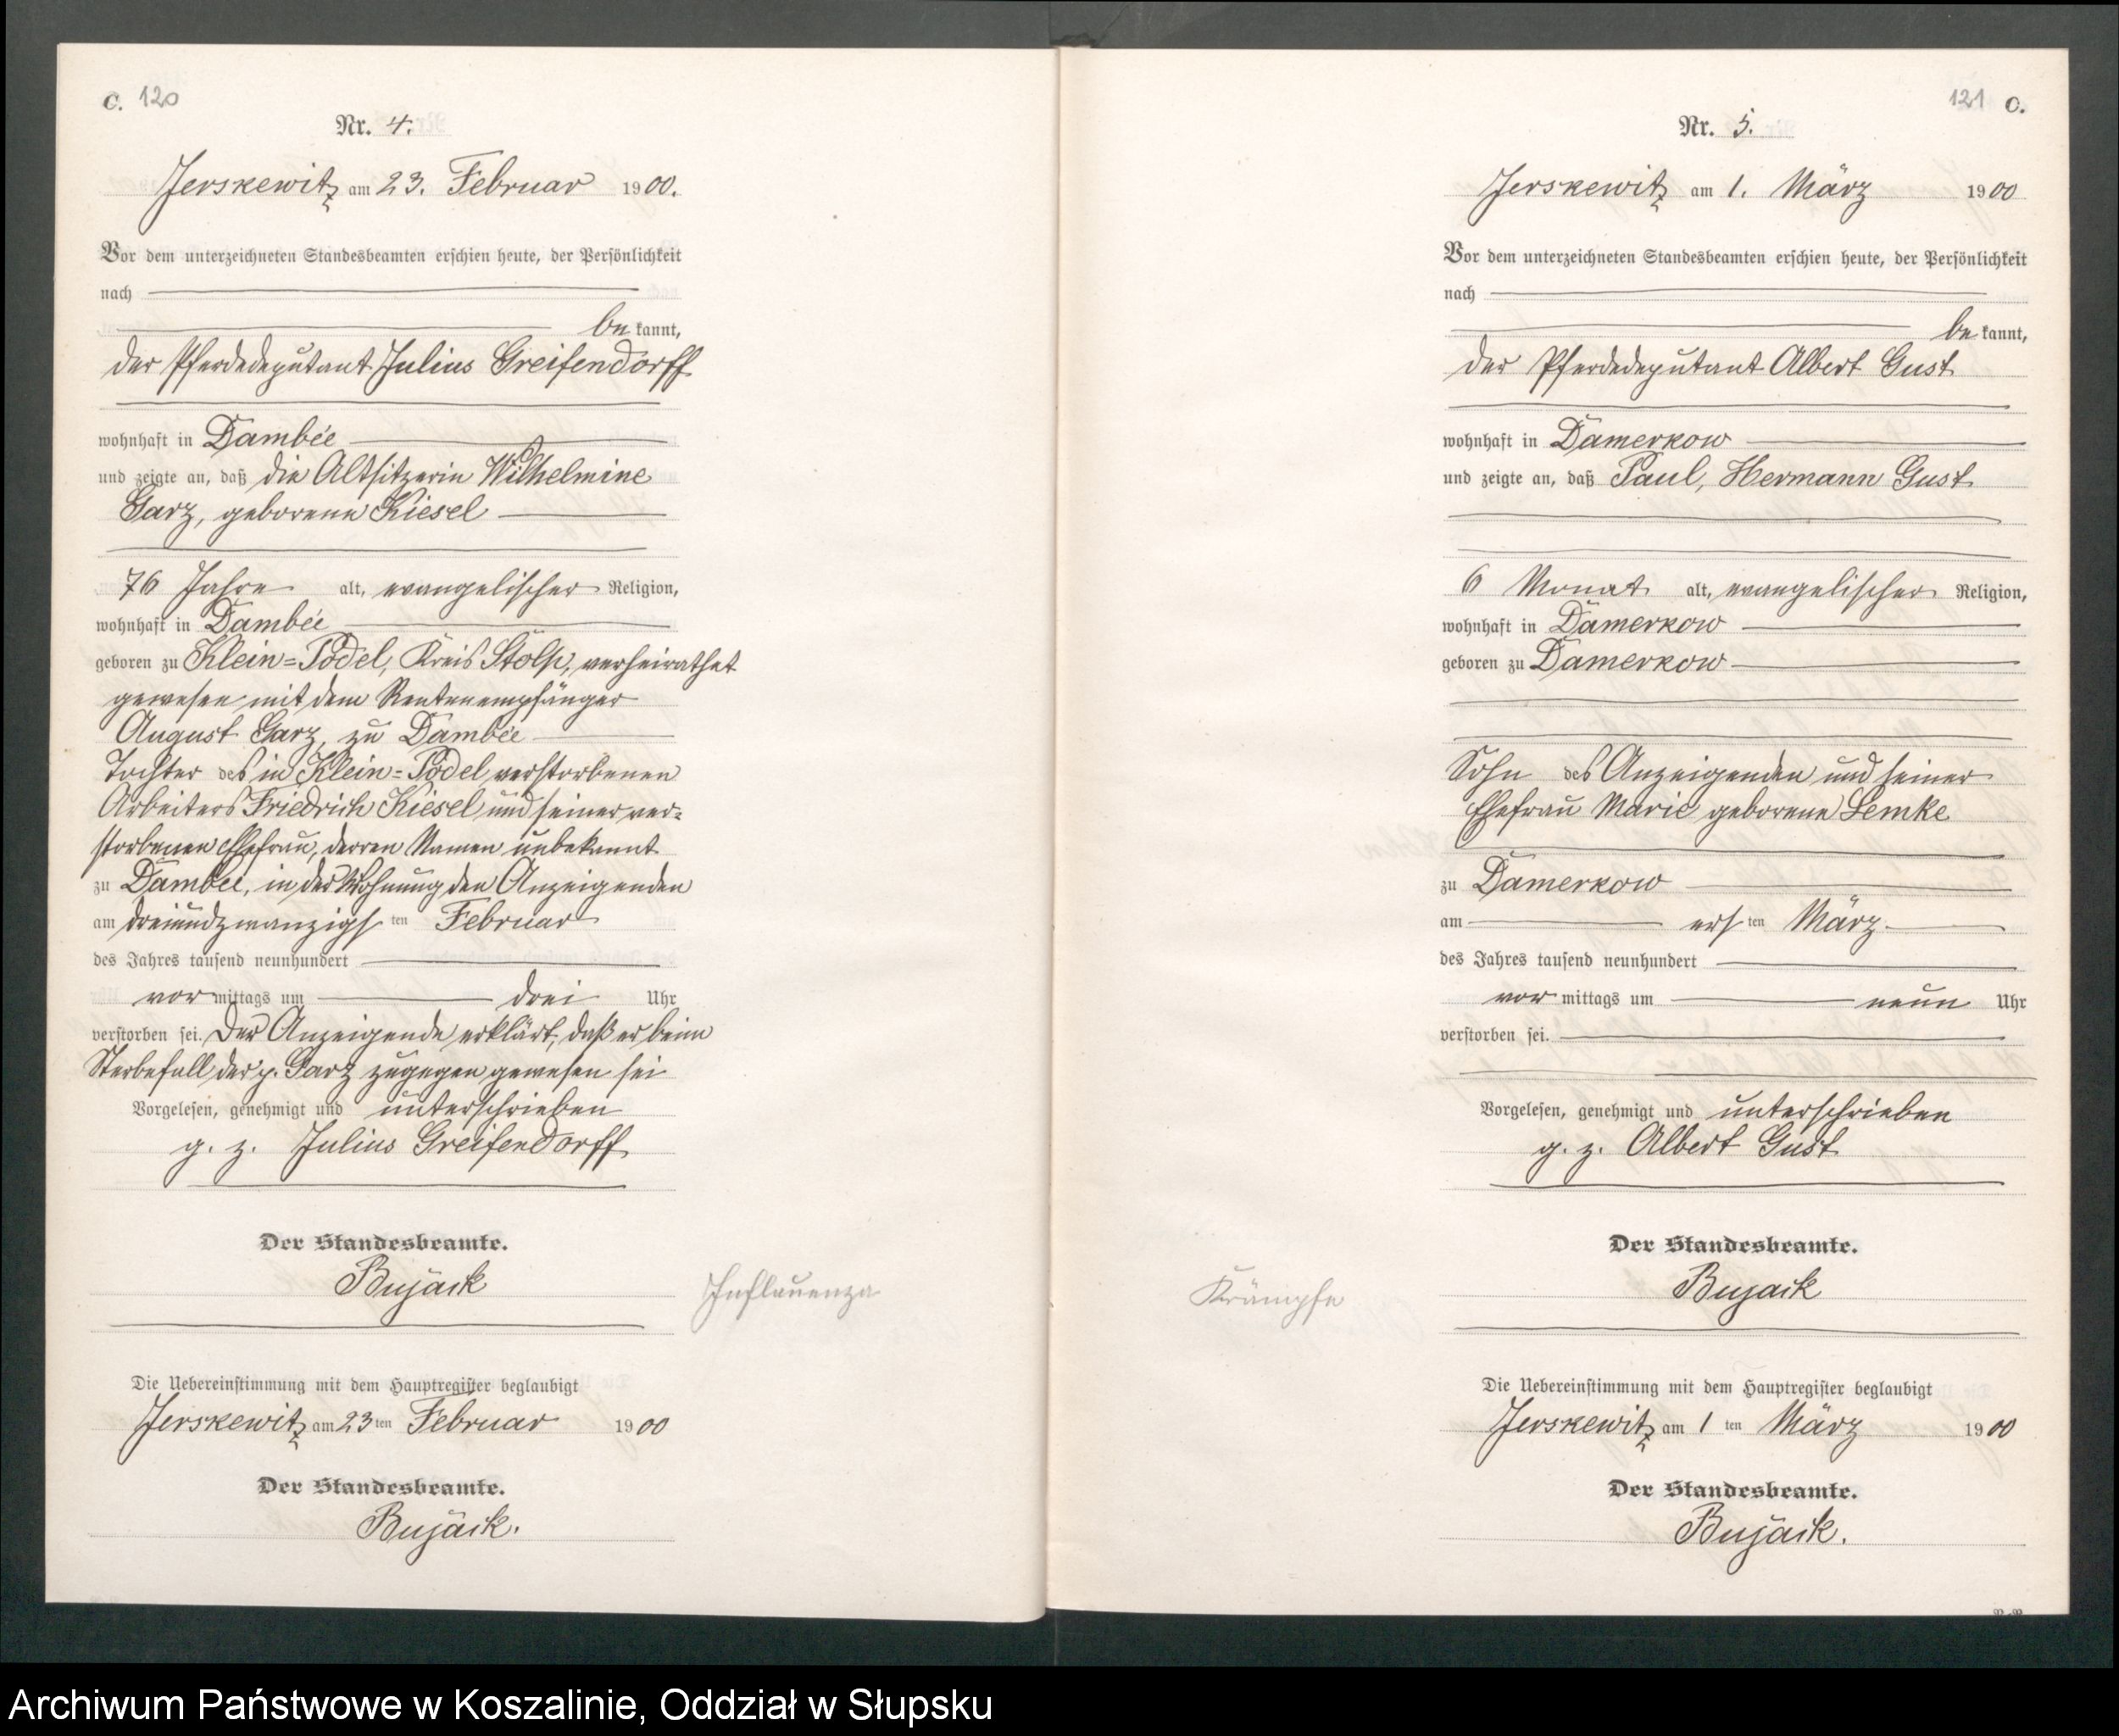 C. 120
Nr. 4.
Jerskewitz am 23. Februar 1900.
Vor dem unterzeichneten Standesbeamten erschien heute, der Persönlichkeit
nach
be kannt,
der Pferdedeputant Julius Greifendorff
wohnhaft in Dambée
und zeigte an, daß die Altsitzerin Wilhelmine
Garz, geborene Kiesel
76 Jahre alt, evangelischer Religion,
wohnhaft in Dambée
geboren zu Klein=Podel, Kreis Stolp, verheirathet
gewesen mit dem Rentenempfänger
August Garz, zu Dambée
Tochter des in Klein=Podel verstorbenen
Arbeiters Friedrich Kiesel und seiner ver=
storbenen Ehefrau, deren Namen unbekannt
zu Dambée, in der Wohnung des Anzeigenden
am dreiundzwanzigs ten Februar
des Jahres tausend neunhundert
vor mittags um drei Uhr
verstorben sei. Der Anzeigende erklärt, daß er beim
Sterbefall der p. Garz zugegen gewesen sei
Vorgelesen, genehmigt und unterschrieben
g. z. Julius Greifendorff
Der Standesbeamte.
Bujack
Inflauenza
Die Uebereinstimmung mit dem Hauptregister beglaubigt
Jerskewitz am 23 ten Februar 1900
Der Standesbeamte.
Bujack.
121 C.
Nr. 5.
Jerskewitz am 1. März 1900
Vor dem unterzeichneten Standesbeamten erschien heute, der Persönlichkeit
nach
be kannt,
der Pferdedeputant Albert Gust
wohnhaft in Damerkow
und zeigte an, daß Paul, Hermann Gust
6 Monat alt, evangelischer Religion,
wohnhaft in Damerkow
geboren zu Damerkow
Sohn des Anzeigenden und seiner
Ehefrau Marie geborene Lemke
zu Damerkow
am ers ten März
des Jahres tausend neunhundert
vor mittags um neun Uhr
verstorben sei.
Vorgelesen, genehmigt und unterschrieben
g. z. Albert Gust
Der Standesbeamte.
Bujack
Krämpfe
Die Uebereinstimmung mit dem Hauptregister beglaubigt
Jerskewitz am 1 ten März 1900
Der Standesbeamte.
Bujack.
Archiwum Państwowe w Koszalinie, Oddział w Słupsku